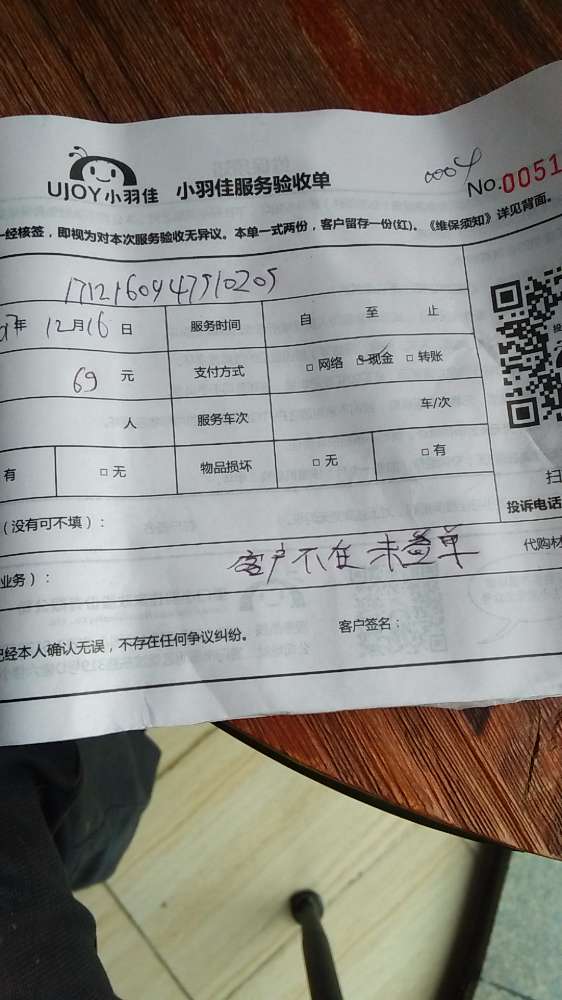 UJOY小羽佳 小羽佳服务验收单
0004
No.0051
一经核签，即视为对本次服务验收无异议。本单一式两份，客户留存一份(红)。《维保须知》详见背面。
17121609447510205
年 12月16日 服务时间 自 至 止
69 元 支付方式 □ 网络 ☑ 现金 □ 转账
人 服务车次 车/次
有 □ 无 物品损坏 □ 无 □ 有
扫
（没有可不填）： 投诉电话
业务）： 客户不在 未签单 代购材
已经本人确认无误，不存在任何争议纠纷。 客户签名：